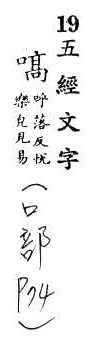 19 五經文字
嗃 呼落反悅
樂皃見易
(口部 P74)